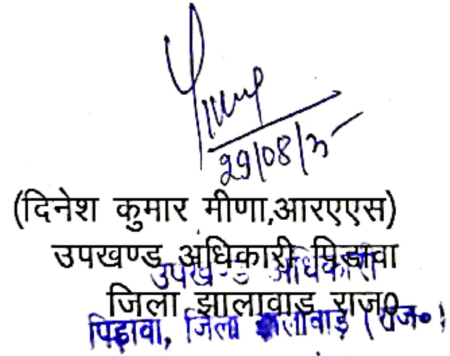 29/08/25
(दिनेश कुमार मीणा,आरएएस)
उपखण्ड अधिकारी पिडावा
जिला झालावाड राज0
उपखण्ड अधिकारी
पिड़ावा, जिला झालावाड़ (राज०)